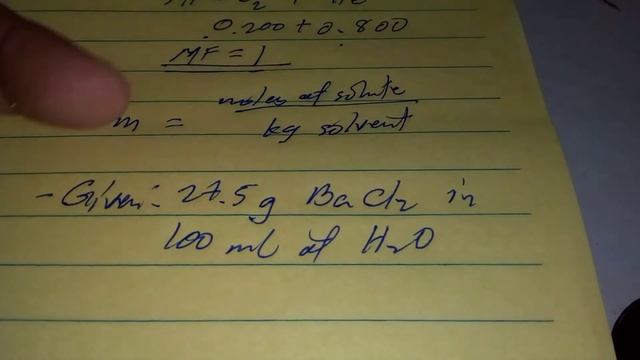 0.200 + 0.800
MF = 1
m = moles of solute
kg solvent
- Given: 27.5g BaCl2 in
100 ml of H2O